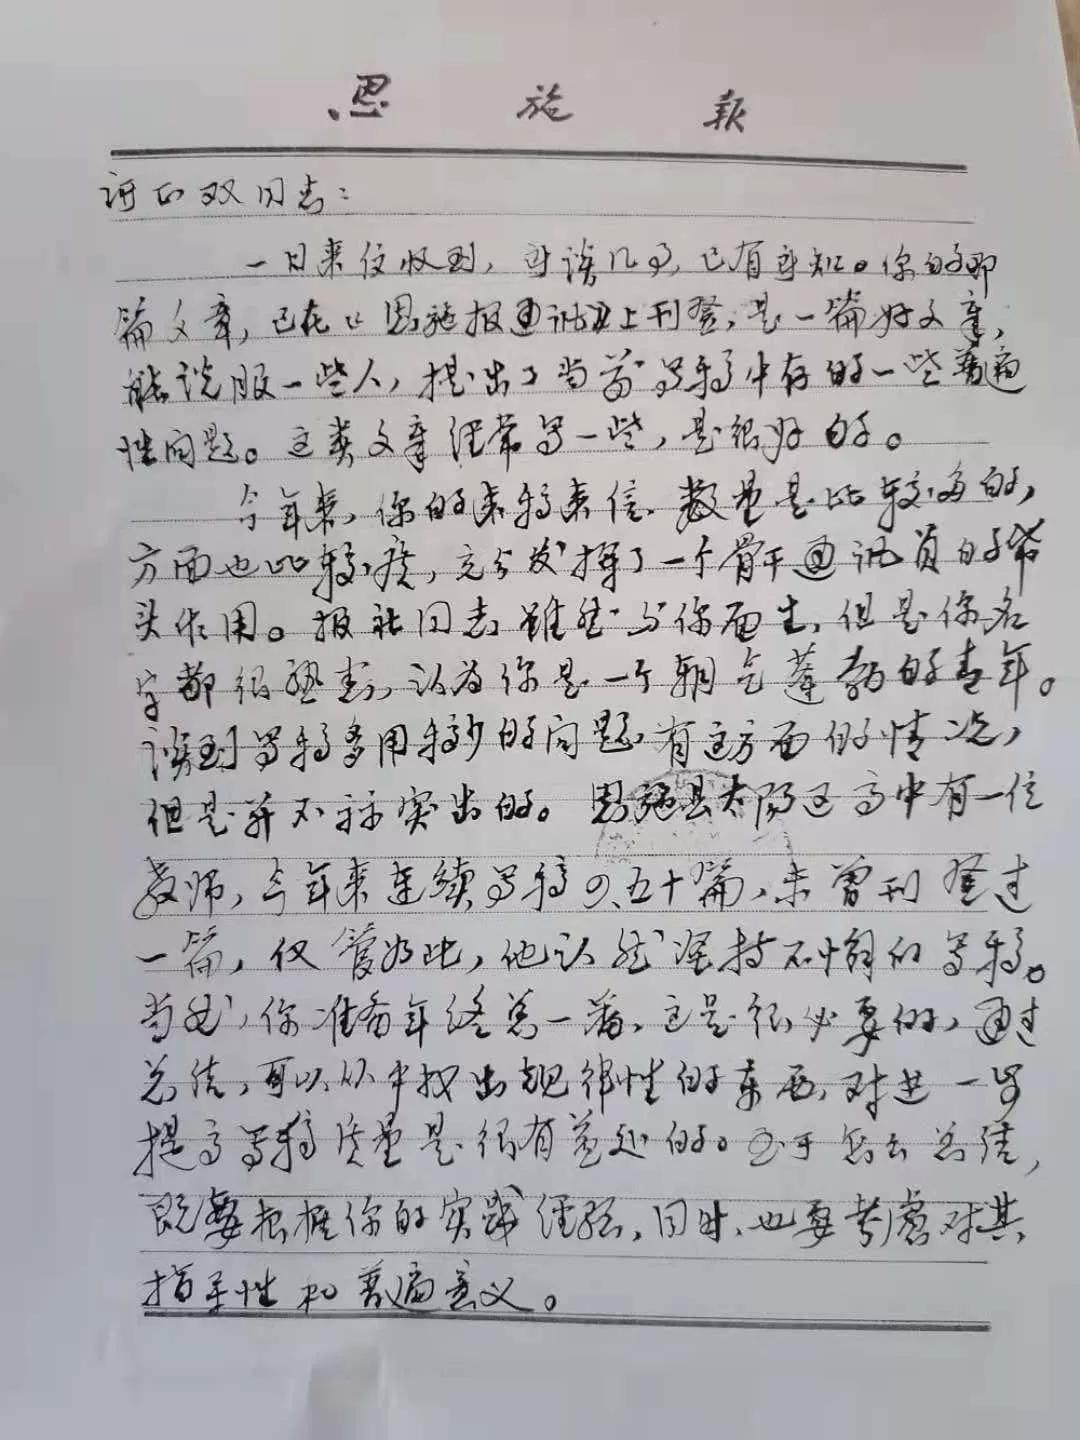 恩施报
双同志：
一日来信收到，可谈几句，已有可知。你的那
篇文章，已在《恩施报通讯》上刊登，是一篇好文章，
能说服一些人，提出了当前写稿中存的一些普遍
性问题。这类文章经常写一些，是很好的。
今年来，你的来稿来信，数量是比较多的，
方面也比较广，充分发挥了一个骨干通讯员的带
头作用。报社同志虽然与你面生，但是你名
字都很熟悉，认为你是一个朝气蓬勃的青年。
谈到写稿多用稿少的问题，有这方面的情况，
但是并不突出的。恩施县太阳河高中有一位
教师，今年来连续写稿四、五十篇，未曾刊登过
一篇，仅管如此，他认然坚持不懈的写稿。
当然，你准备年终总一番，这是很必要的，通过
总结，可以从中找出规律性的东西，对进一步
提高写稿质量是很有益处的。至于怎么总结，
既要根据你的实践经验，同时，也要考虑对其
指导性和普遍意义。